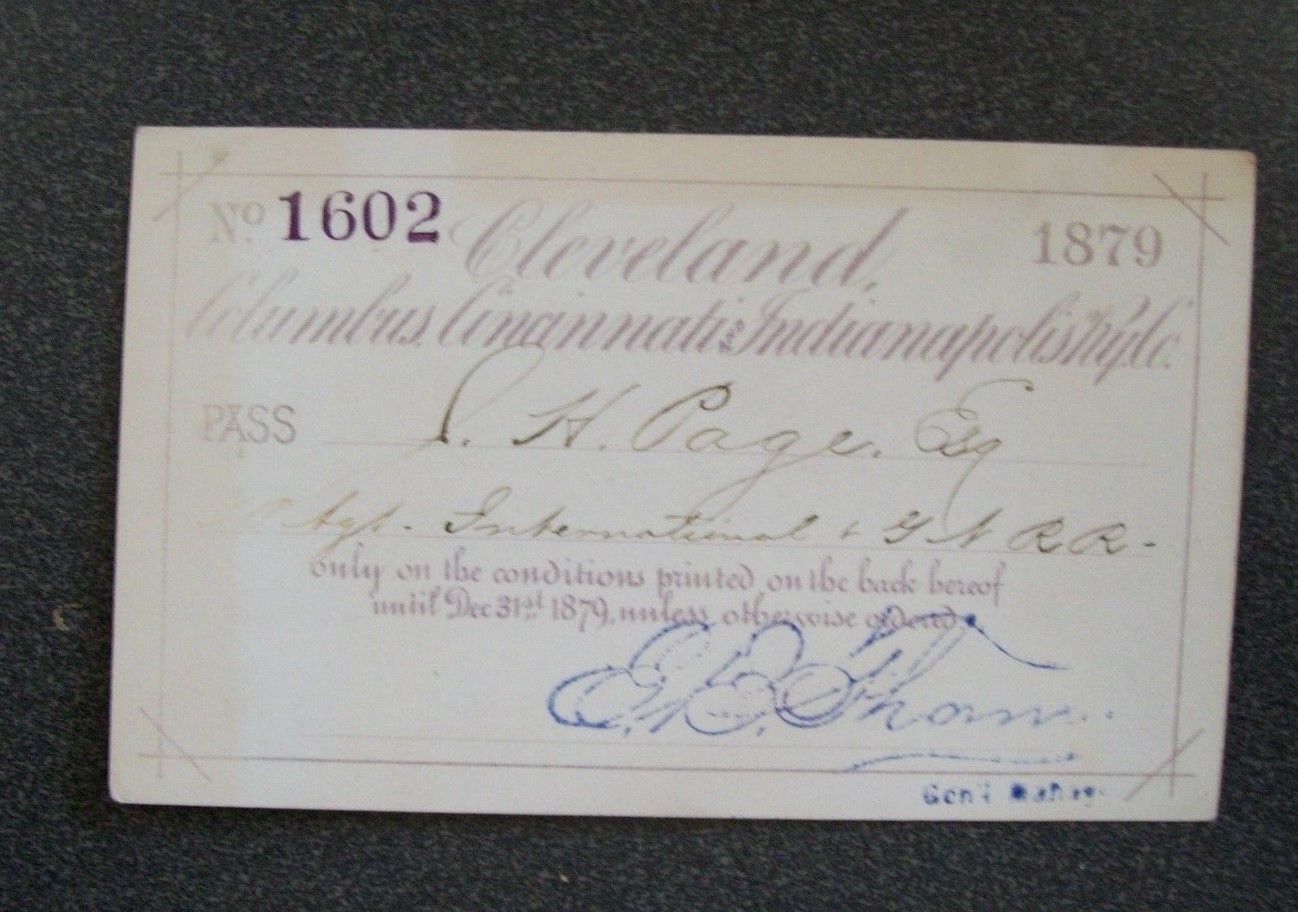 No 1602 Cleveland, 1879
Columbus, Cincinnati & Indianapolis Ry. Co.
PASS J. H. Page, Esq
Agt. International & G N R R -
only on the conditions printed on the back hereof
until Dec 31st 1879, unless otherwise ordered.
E. B. Thomas
Gen'l Manag.